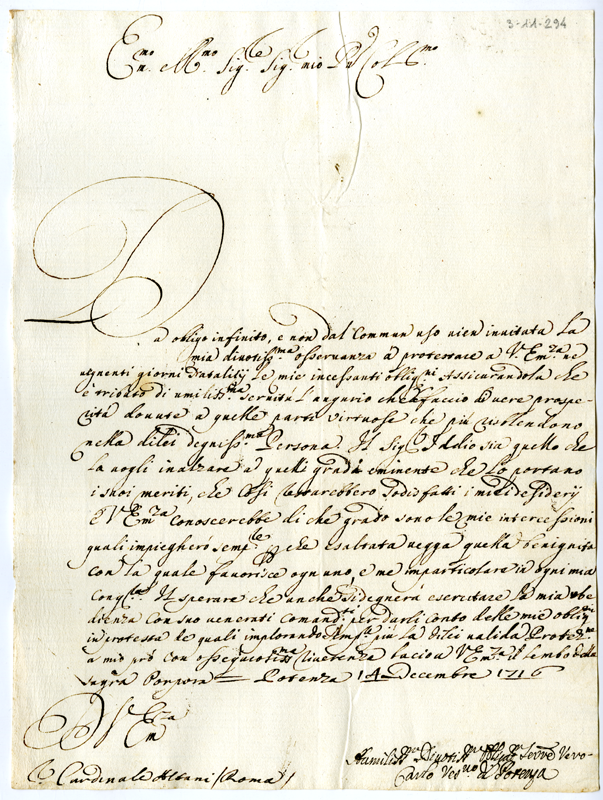 3-11-294
Em.mo R.mo Sig.re Sig.re mio P.ne Col.mo
Da obligo infinito, e non dal Commun uso vien invitata La
mia divotiss.ma osservanza à protestare a V. Em.za ne
vegnenti giorni Natalitij Le mie incessanti oblig.ni Assicurandola che
è tributo di umiliss.ma servitù L'augurio che faccio di vere prospe-
rità dovute a quelle parti virtuose che più risblendono
nella dilei degniss.ma Persona. Il Sig. Iddio sia quello che
La vogli inalzare a quelli gradi eminente che Lo portano
i suoi meriti, che Cosi restarebbero sodisfatti i miei desiderij
e V. Em.za conoscerebbe di che grado sono le mie intercessioni
quali impiegherò semp.re che esaltata vegga quella benignità
con la quale favorisce ogn'uno, e me imparticolare in ogni mia
Il sperare che anche si degnerà esercitare la mia obe
dienza con suoi venerati Comand.ti per darli conto delle mie oblig.ni
in protesta le quali implorando semp.re più La dilei valida Protez.ne
a mio prò con ossequiosiss.ma riverenza bacio a V. Em.za il Lembo della
Sagra Porpora = Potenza 14 Decembre 1716
D V. Em.za
S.r Cardinale Albani / Roma /
Humiliss.mo Divotiss.mo Oblig.mo Serv.re Vero
Carlo Ves.vo di Potenza